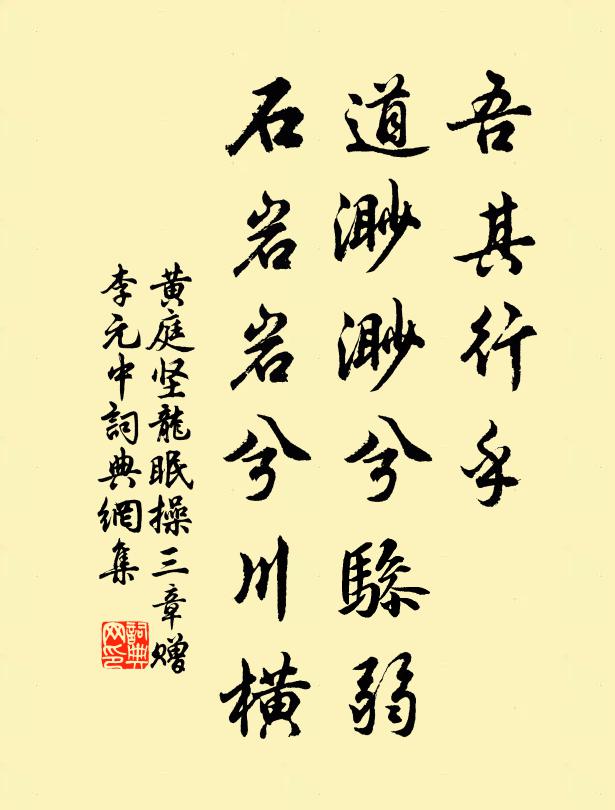 吾其行乎
道渺渺兮驂弱
石岩岩兮川橫
黄庭坚龍眠操三章赠
李元中詞典網集
詞典
网印